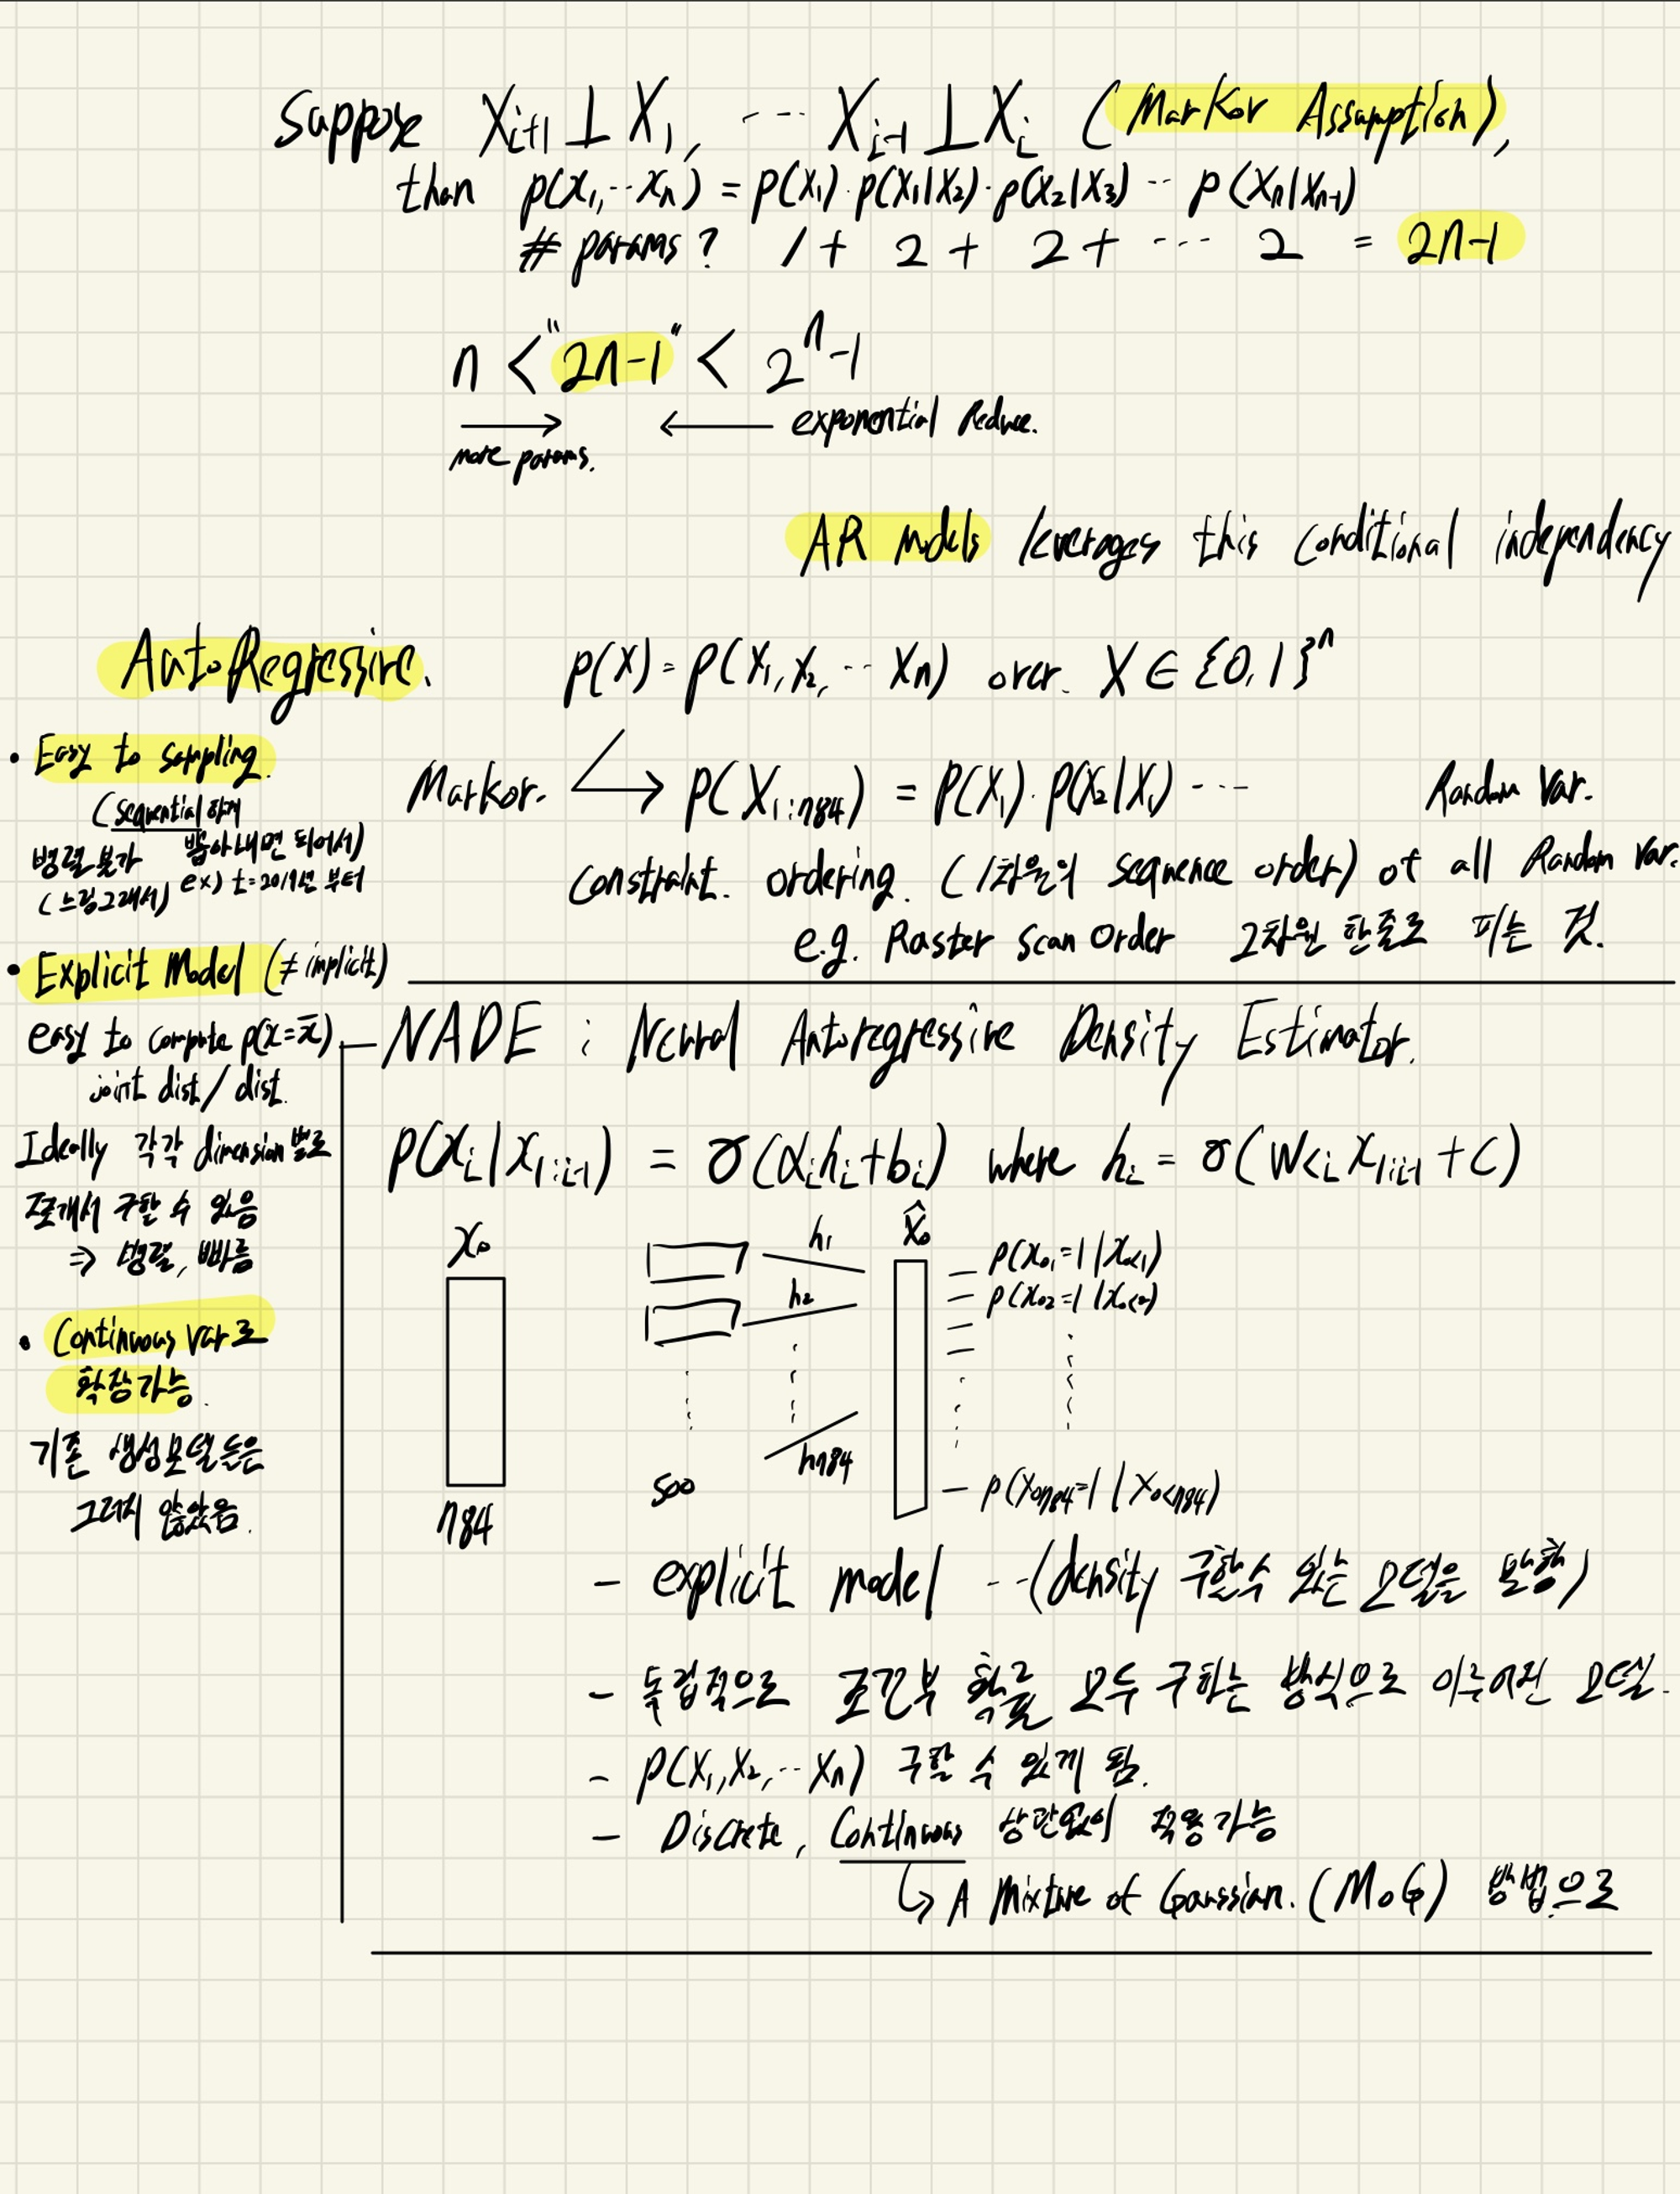 Suppose Xi+1 ⊥ X1, ... Xi-1 ⊥ Xi (Markov Assumption),
than p(x1, ·· xn) = p(x1) · p(x1|x2) · p(x2|x3) ·· p(xn|xn-1)
# params? 1 + 2 + 2 + ··· 2 = 2n-1
n < "2n-1" < 2^n-1
more params.
exponential Reduce.
AR models leverages this conditional independency
AutoRegressive.
p(x) = p(x1, x2, ··· xn) over. X ∈ {0,1}^n
Markov. → p(X1:784) = p(X1) · p(X2|X1) ···
Random Var.
constraint. ordering. (1차원의 sequence order) of all Random Var.
e.g. Raster scan Order 2차원 한줄로 피는 것.
• Easy to sampling.
(sequential 하게
뽑아내면 되어서)
병렬 불가
ex) t=2019년 부터
(느림 그래서)
• Explicit Model (≠ implicit)
easy to compute p(x=x̄)
joint dist / dist.
Ideally 각각 dimension별로
쪼개서 구할 수 있음
⇒ 병렬, 빠름
• Continuous var로
확장가능.
기존 생성모델들은
그러지 않았음.
NADE : Neural Autoregressive Density Estimator.
p(xi|x1:i-1) = σ(αihi+bi) where hi = σ(W<i x1:i-1 + c)
x0
784
500
h1
h2
h784
x̂0
p(x01=1|x0<1)
p(x02=1|x0<2)
p(x0784=1|x0<784)
- explicit model ··(density 구할수 있는 모델을 말함)
- 독립적으로 조건부 확률 모두 구하는 방식으로 이루어진 모델.
- p(x1, x2, ·· xn) 구할 수 있게 됨.
- Discrete, Continuous 상관없이 적용가능
↳ A Mixture of Gaussian. (MoG) 방법으로